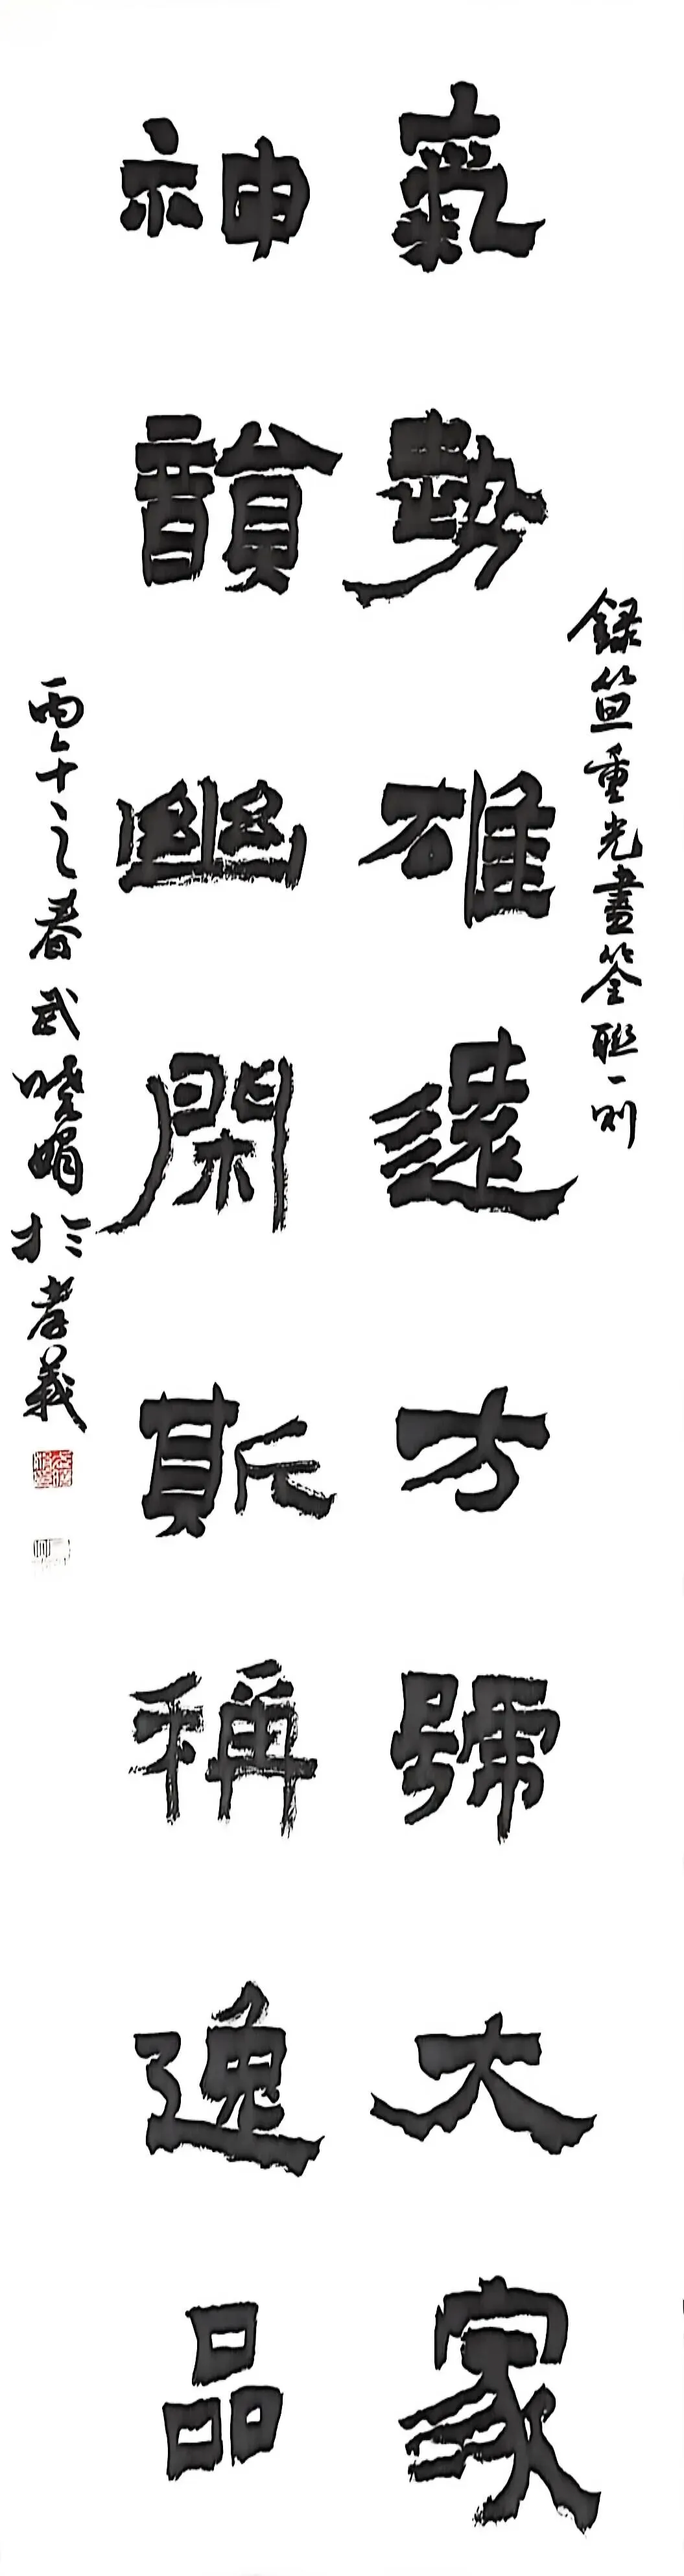 氣勢雄遠方號大家
錄笪重光畫筌聯一則
神韻幽閑斯稱逸品
丙午之春武曉娟於孝義